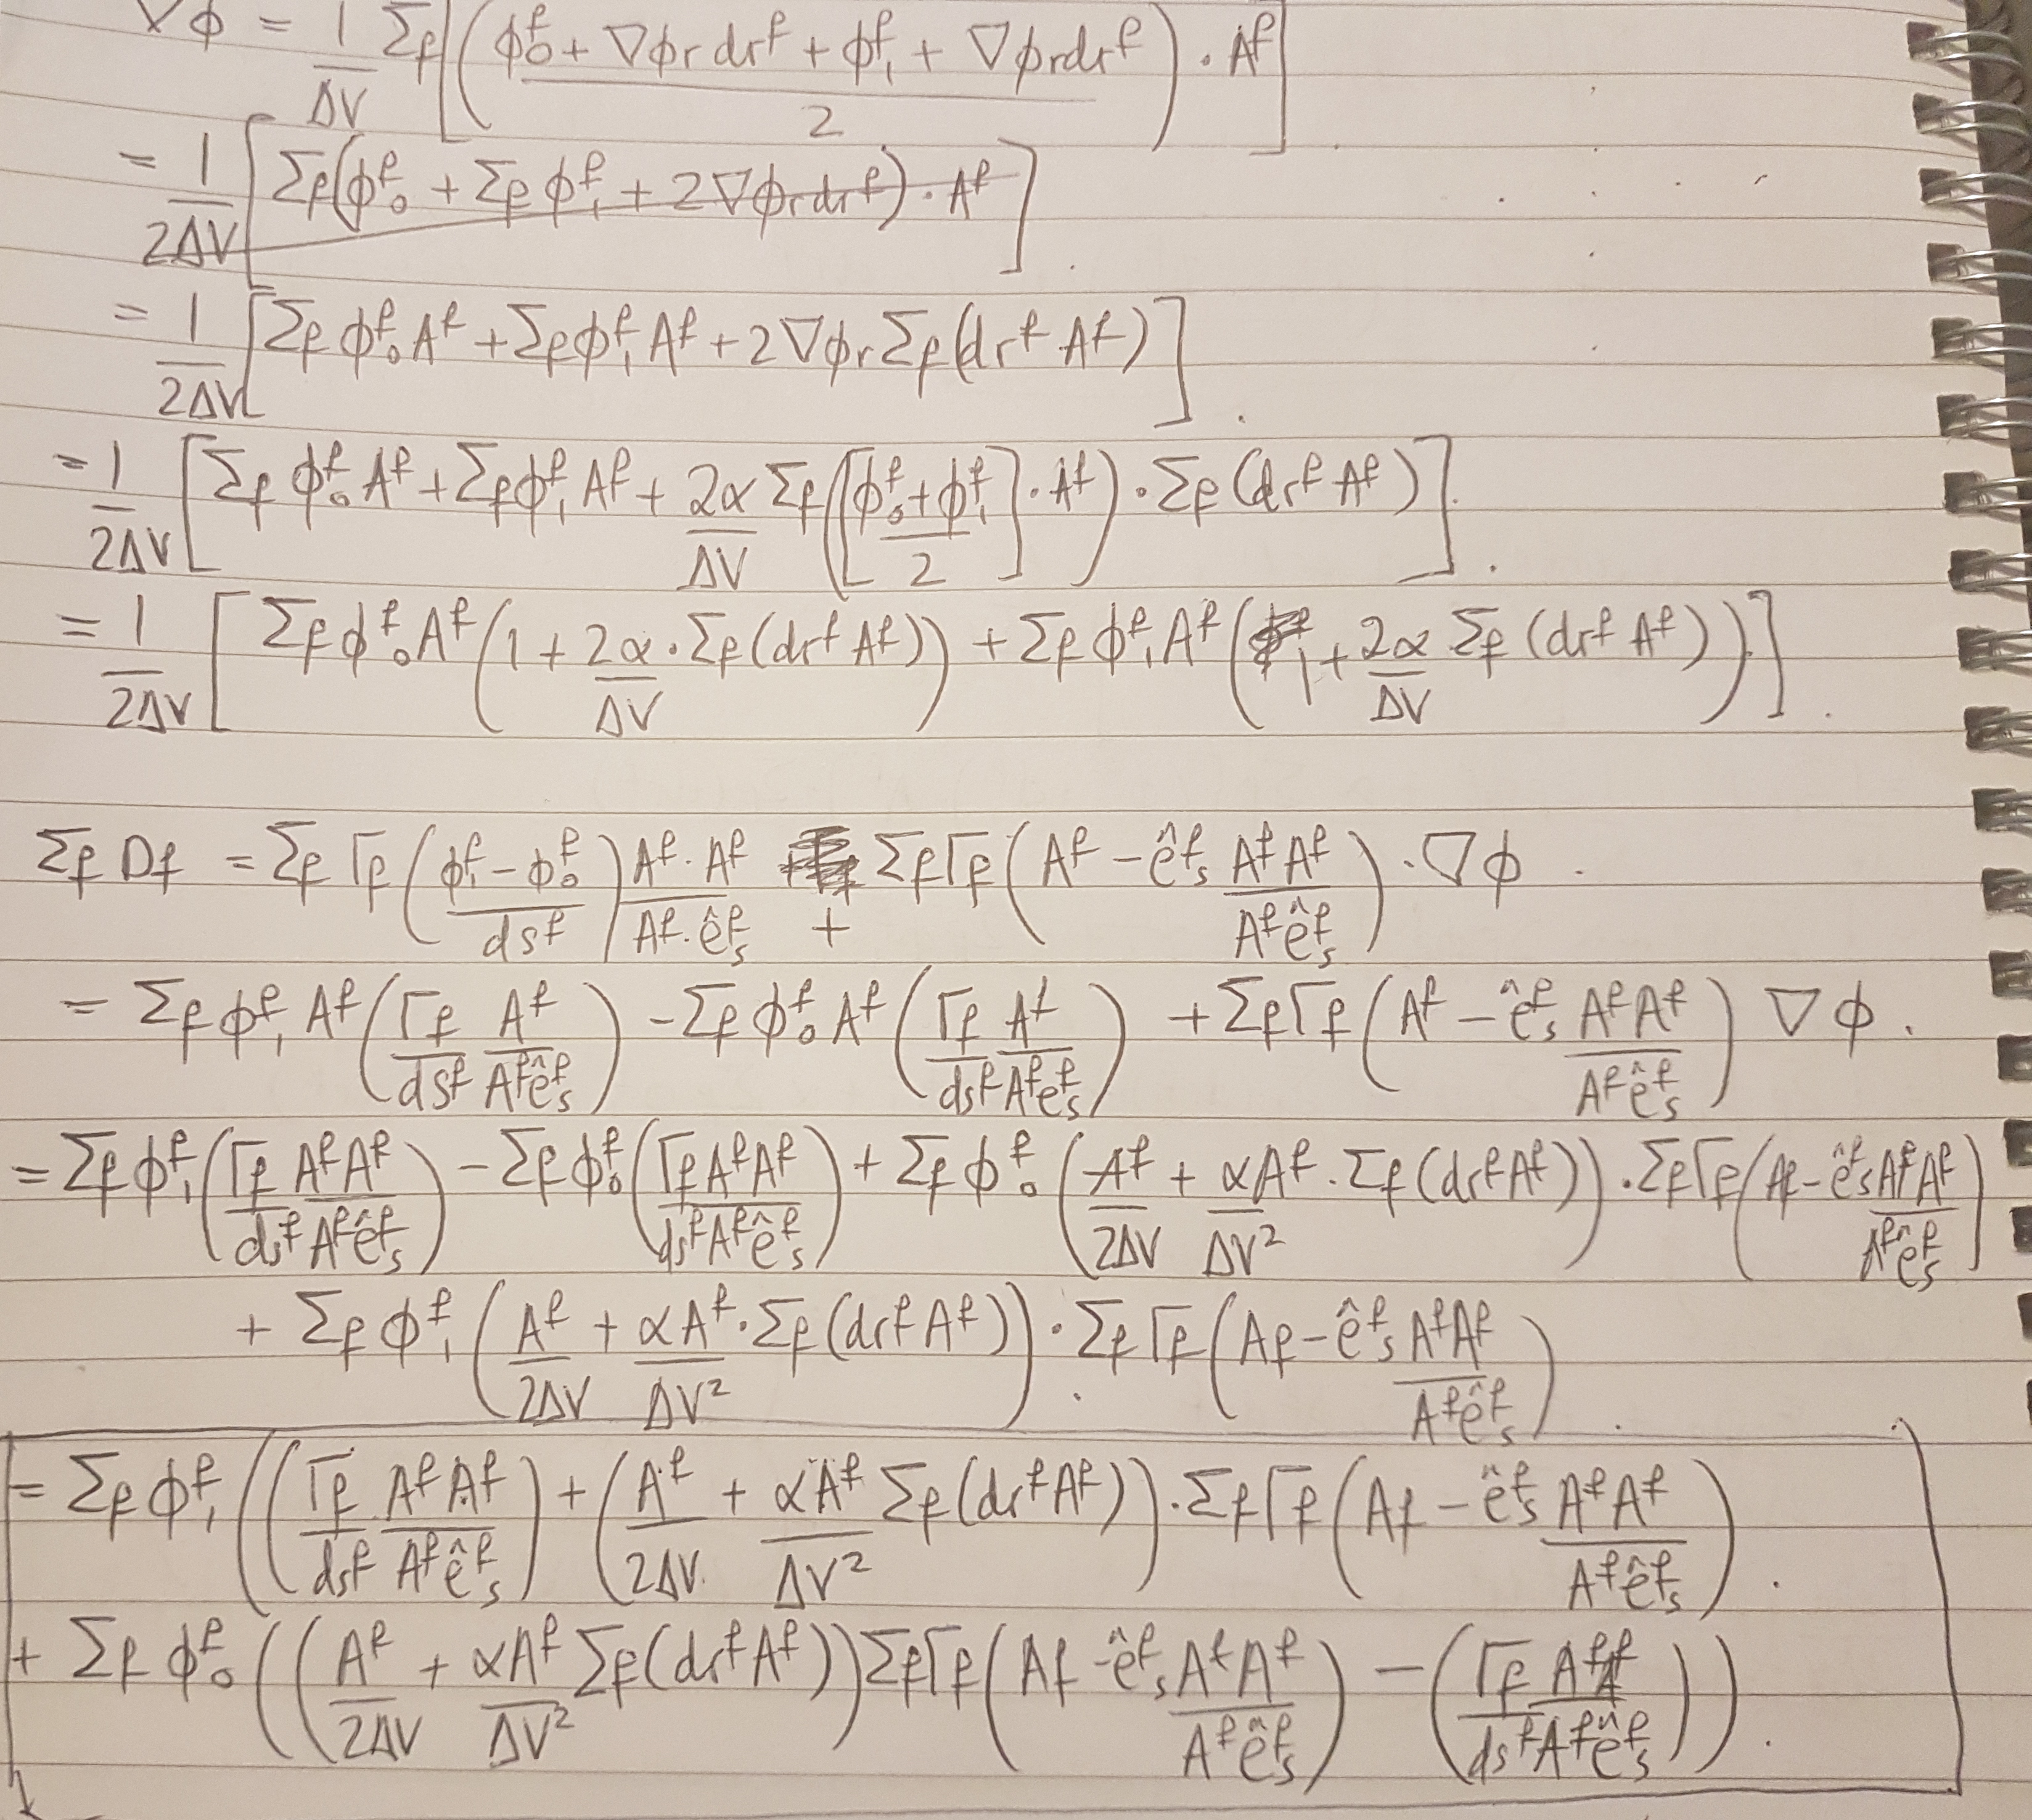 ∇φ = 1/ΔV Σf[((φ₀ᶠ + ∇φr drᶠ + φ₁ᶠ + ∇φr drᶠ)/2) · Aᶠ]
= 1/2ΔV [Σf(φ₀ᶠ + Σf φ₁ᶠ + 2∇φr drᶠ) · Aᶠ].
= 1/2ΔV [Σf φ₀ᶠ Aᶠ + Σf φ₁ᶠ Aᶠ + 2∇φr Σf(drᶠ Aᶠ)].
= 1/2ΔV [Σf φ₀ᶠ Aᶠ + Σf φ₁ᶠ Aᶠ + 2α/ΔV Σf([(φ₀ᶠ + φ₁ᶠ)/2] · Aᶠ) · Σf(drᶠ Aᶠ)].
= 1/2ΔV [Σf φ₀ᶠ Aᶠ (1 + 2α/ΔV · Σf(drᶠ Aᶠ)) + Σf φ₁ᶠ Aᶠ (1 + 2α/ΔV Σf(drᶠ Aᶠ))].
Σf Df = Σf Γf ((φ₁ᶠ − φ₀ᶠ)/dsᶠ) Aᶠ · Aᶠ/Aᶠ · êsᶠ + Σf Γf (Aᶠ − êsᶠ AᶠAᶠ/Aᶠêsᶠ) · ∇φ.
= Σf φ₁ᶠ Aᶠ (Γf/dsᶠ Aᶠ/Aᶠêsᶠ) − Σf φ₀ᶠ Aᶠ (Γf/dsᶠ Aᶠ/Aᶠêsᶠ) + Σf Γf (Aᶠ − êsᶠ AᶠAᶠ/Aᶠêsᶠ) ∇φ.
= Σf φ₁ᶠ (Γf/dsᶠ AᶠAᶠ/Aᶠêsᶠ) − Σf φ₀ᶠ (Γf AᶠAᶠ/dsᶠAᶠêsᶠ) + Σf φ₀ᶠ (Aᶠ/2ΔV + αAᶠ/ΔV² · Σf(drᶠAᶠ)) · Σf Γf (Af − êsᶠ AᶠAᶠ/Aᶠêsᶠ)
+ Σf φ₁ᶠ (Aᶠ/2ΔV + αAᶠ/ΔV² · Σf(drᶠAᶠ)) · Σf Γf (Af − êsᶠ AᶠAᶠ/Aᶠêsᶠ).
= Σf φ₁ᶠ ((Γf/dsᶠ AᶠAᶠ/Aᶠêsᶠ) + (Aᶠ/2ΔV + αAᶠ/ΔV² Σf(drᶠAᶠ)) · Σf Γf (Af − êsᶠ AᶠAᶠ/Aᶠêsᶠ).
+ Σf φ₀ᶠ ((Aᶠ/2ΔV + αAᶠ/ΔV² Σf(drᶠAᶠ)) Σf Γf (Af − êsᶠ AᶠAᶠ/Aᶠêsᶠ) − (Γf AᶠAᶠ/dsᶠAᶠêsᶠ)).